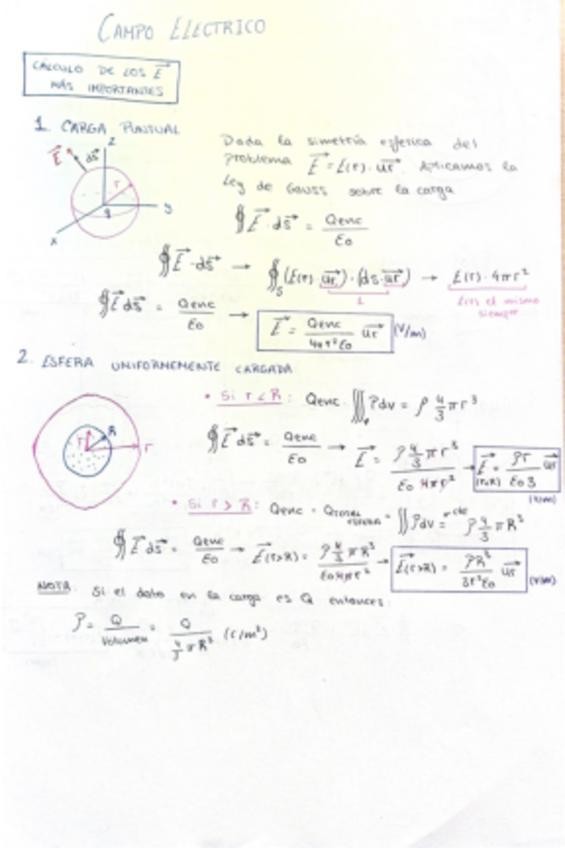 CAMPO ELECTRICO
CÁLCULO DE LOS E⃗
MÁS IMPORTANTES
1. CARGA PUNTUAL
z
E⃗ ds⃗
r
q
y
x
Dada la simetría esferica del
problema E⃗ = E(r) · ur⃗. Aplicamos la
Ley de Gauss sobre la carga
∯ E⃗ · ds⃗ = Qenc / ε0
∯ E⃗ · ds⃗ → ∯s (E(r) · ur⃗) · (ds · ur⃗) → E(r) · 4πr²
1
E(r) el mismo
siempre
∯ E⃗ ds⃗ = Qenc / ε0 → E⃗ = Qenc / 4πr²ε0 ur⃗ (V/m)
2. ESFERA UNIFORMEMENTE CARGADA
r R r
• Si r < R: Qenc = ∭v ρdv = ρ 4/3 πr³
∯ E⃗ ds⃗ = Qenc / ε0 → E⃗ = ρ 4/3 πr³ / ε0 4πr² → E⃗ (r<R) = ρr / ε0 3 ur⃗
(V/m)
• Si r > R: Qenc = QTOTAL ESFERA = ∭ ρdv = ρ 4/3 πR³
cte
∯ E⃗ ds⃗ = Qenc / ε0 → E⃗(r>R) = ρ 4/3 πR³ / ε0 4πr² → E⃗(r>R) = ρR³ / 3r²ε0 ur⃗ (V/m)
NOTA: Si el dato en la carga es Q entonces:
ρ = Q / Volumen = Q / 4/3 πR³ (C/m³)